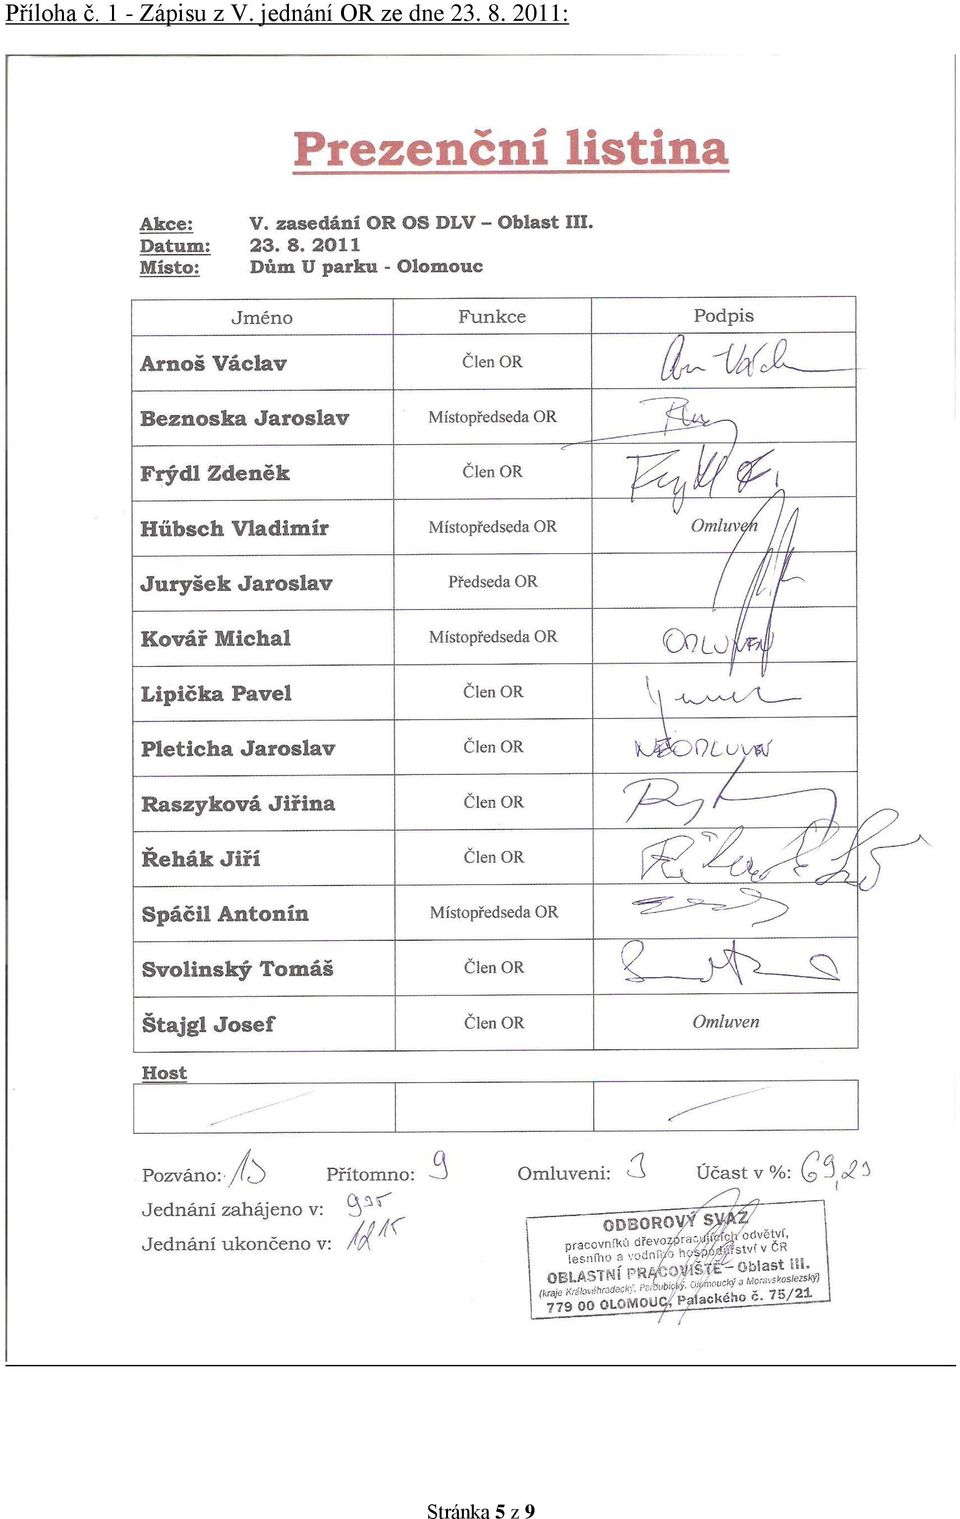 Příloha č. 1 - Zápisu z V. jednání OR ze dne 23. 8. 2011:
Prezenční listina
Akce: V. zasedání OR OS DLV – Oblast III.
Datum: 23. 8. 2011
Místo: Dům U parku - Olomouc
Jméno Funkce Podpis
Arnoš Václav Člen OR
Beznoska Jaroslav Místopředseda OR
Frýdl Zdeněk Člen OR
Hűbsch Vladimír Místopředseda OR Omluven
Juryšek Jaroslav Předseda OR
Kovář Michal Místopředseda OR OMLUVEN
Lipička Pavel Člen OR
Pleticha Jaroslav Člen OR NEOMLUVEN
Raszyková Jiřina Člen OR
Řehák Jiří Člen OR
Spáčil Antonín Místopředseda OR
Svolinský Tomáš Člen OR
Štajgl Josef Člen OR Omluven
Host
Pozváno: 13 Přítomno: 9 Omluveni: 3 Účast v %: 69,23
Jednání zahájeno v: 935
Jednání ukončeno v: 1215
ODBOROVÝ SVAZ
pracovníků dřevozpracujících odvětví,
lesního a vodního hospodářství v ČR
OBLASTNÍ PRACOVIŠTĚ – Oblast III.
(kraje Královéhradecký, Pardubický, Olomoucký a Moravskoslezský)
779 00 OLOMOUC, Palackého č. 75/21
Stránka 5 z 9